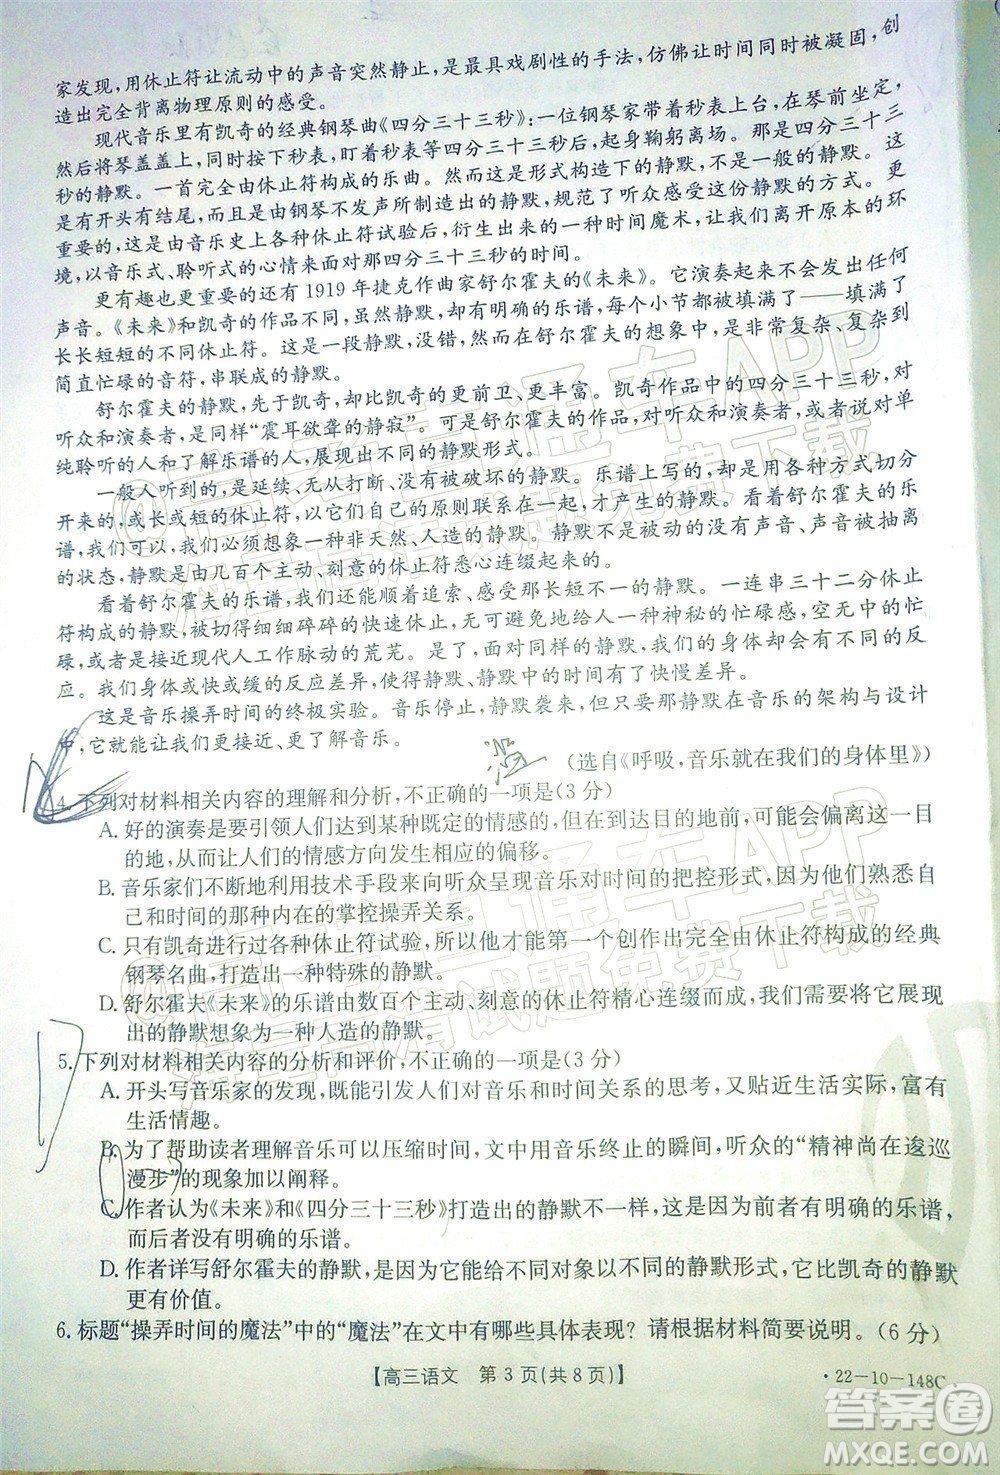 家发现，用休止符让流动中的声音突然静止，是最具戏剧性的手法，仿佛让时间同时被凝固，创
造出完全背离物理原则的感受。
现代音乐里有凯奇的经典钢琴曲《四分三十三秒》：一位钢琴家带着秒表上台，在琴前坐定，
然后将琴盖盖上，按下秒表，盯着秒表等四分三十三秒后，起身鞠躬离场。那是四分三十三
秒的静默。一首完全由休止符构成的乐曲。然而这是形式构造下的静默。规范了时间，这
是有开头有结尾，而且是由钢琴不发声所制造出的静默，规范了听众感受这份静默的方式。更
重要的，这是由音乐史上各种休止符试验后，衍生出来的一种时间魔术，让我们离开原本的环
境，以音乐式、聆听式的心情来面对那四分三十三秒的时间。
更有趣也更特别的还有1919年捷克作曲家舒尔霍夫的《未来》。它演奏起来不会有任何
声音。《未来》和凯奇的作品不同，舒尔霍夫有明确的乐谱，每个小节都填满了——填满了
长长短短的不同休止符。这是一段静默，没错，然而在舒尔霍夫的想象中，是非常复杂、复杂到
简直忙碌的音符，串联成的静默。
舒尔霍夫的静默，先于凯奇，却比凯奇的更前卫、更丰富。凯奇作品中的四分三十三秒，对
听众和演奏者，是同样“震耳欲聋的静寂”。可是舒尔霍夫的作品，对听众和演奏者，或者说对单
纯聆听的人和了解乐谱的人，展现出不同的静默形式。
一般人听到的，是延续、无从打断、没有被破坏的静默。乐谱上写的，却是用各种方式切分
开来的，或长或短的休止符，以它们自己的原则联系在一起，才产生的静默。看着舒尔霍夫的乐
谱，我们突然可以想象一种非天然、人造的静默。静默不是被动的没有声音、声音被抽离
的状态，静默是由几百个主动、刻意的休止符悉心连缀起来的。
看着舒尔霍夫的乐谱，我们感受到用耳朵听时感受不到的时间静默。一连串三十二分休止
符构成的静默，被切得细细碎碎的快速休止，无可避免地给人一种神秘的忙碌感，空无中的忙
碌，或者是接近现代人工作脉动的荒芜。是了，即使同样是静默，我们还是会有不同的反
应。我们身体或快或慢的反应差异，使得静默、静默中的时间有了快慢差异。
这是音乐操弄时间的终极实验。音乐停止，静默袭来，但只要静默在音乐的架构与设计
中，它就能让我们更接近、更了解音乐。
（选自《呼吸，音乐就在我们的身体里》）
4.下列对材料相关内容的理解和分析，不正确的一项是(3分)
A.好的演奏是要引领人们达到某种既定的情感的，但在到达目的地前，可能会偏离出一
的地，从而让人们的情感方向发生相应的偏移。
B.音乐家们不断地利用技术手段来向听众呈现音乐对时间的把控形式，也在思考着自
己和时间的那种内在的掌控操弄关系。
C.只有凯奇进行过各种休止符试验，所以他才能第一个创作出完全由休止符构成的经典
钢琴名曲，打造出一种特殊的静默。
D.舒尔霍夫《未来》的乐谱由数百个主动、刻意的休止符精心连缀而成，我们可以将它展现
出的静默想象为一种人造的静默。
5.下列对材料相关内容的分析和评价，不正确的一项是(3分)
A.开头写音乐家的发现，既能引发人们对音乐和时间关系的思考，又贴近生活实际，富有
生活情趣。
B.为了帮助读者理解音乐可以压缩时间，文中用音乐终止的瞬间，听众的“精神尚在逡巡
漫步”的现象加以阐释。
C.作者认为《未来》和《四分三十三秒》打造出的静默不一样，或者前者有明确的乐谱，
而后者没有明确的乐谱。
D.作者详写舒尔霍夫的静默，称赞它能展现出不同的静默形式，也认为它比凯奇的静默
更有价值。
6.标题“操弄时间的魔法”中的“魔法”在文中有哪些具体表现？请根据材料简要说明。(6分)
【高三语文 第3页(共8页)】
·22－10－148C
答案圈
MXQE.COM